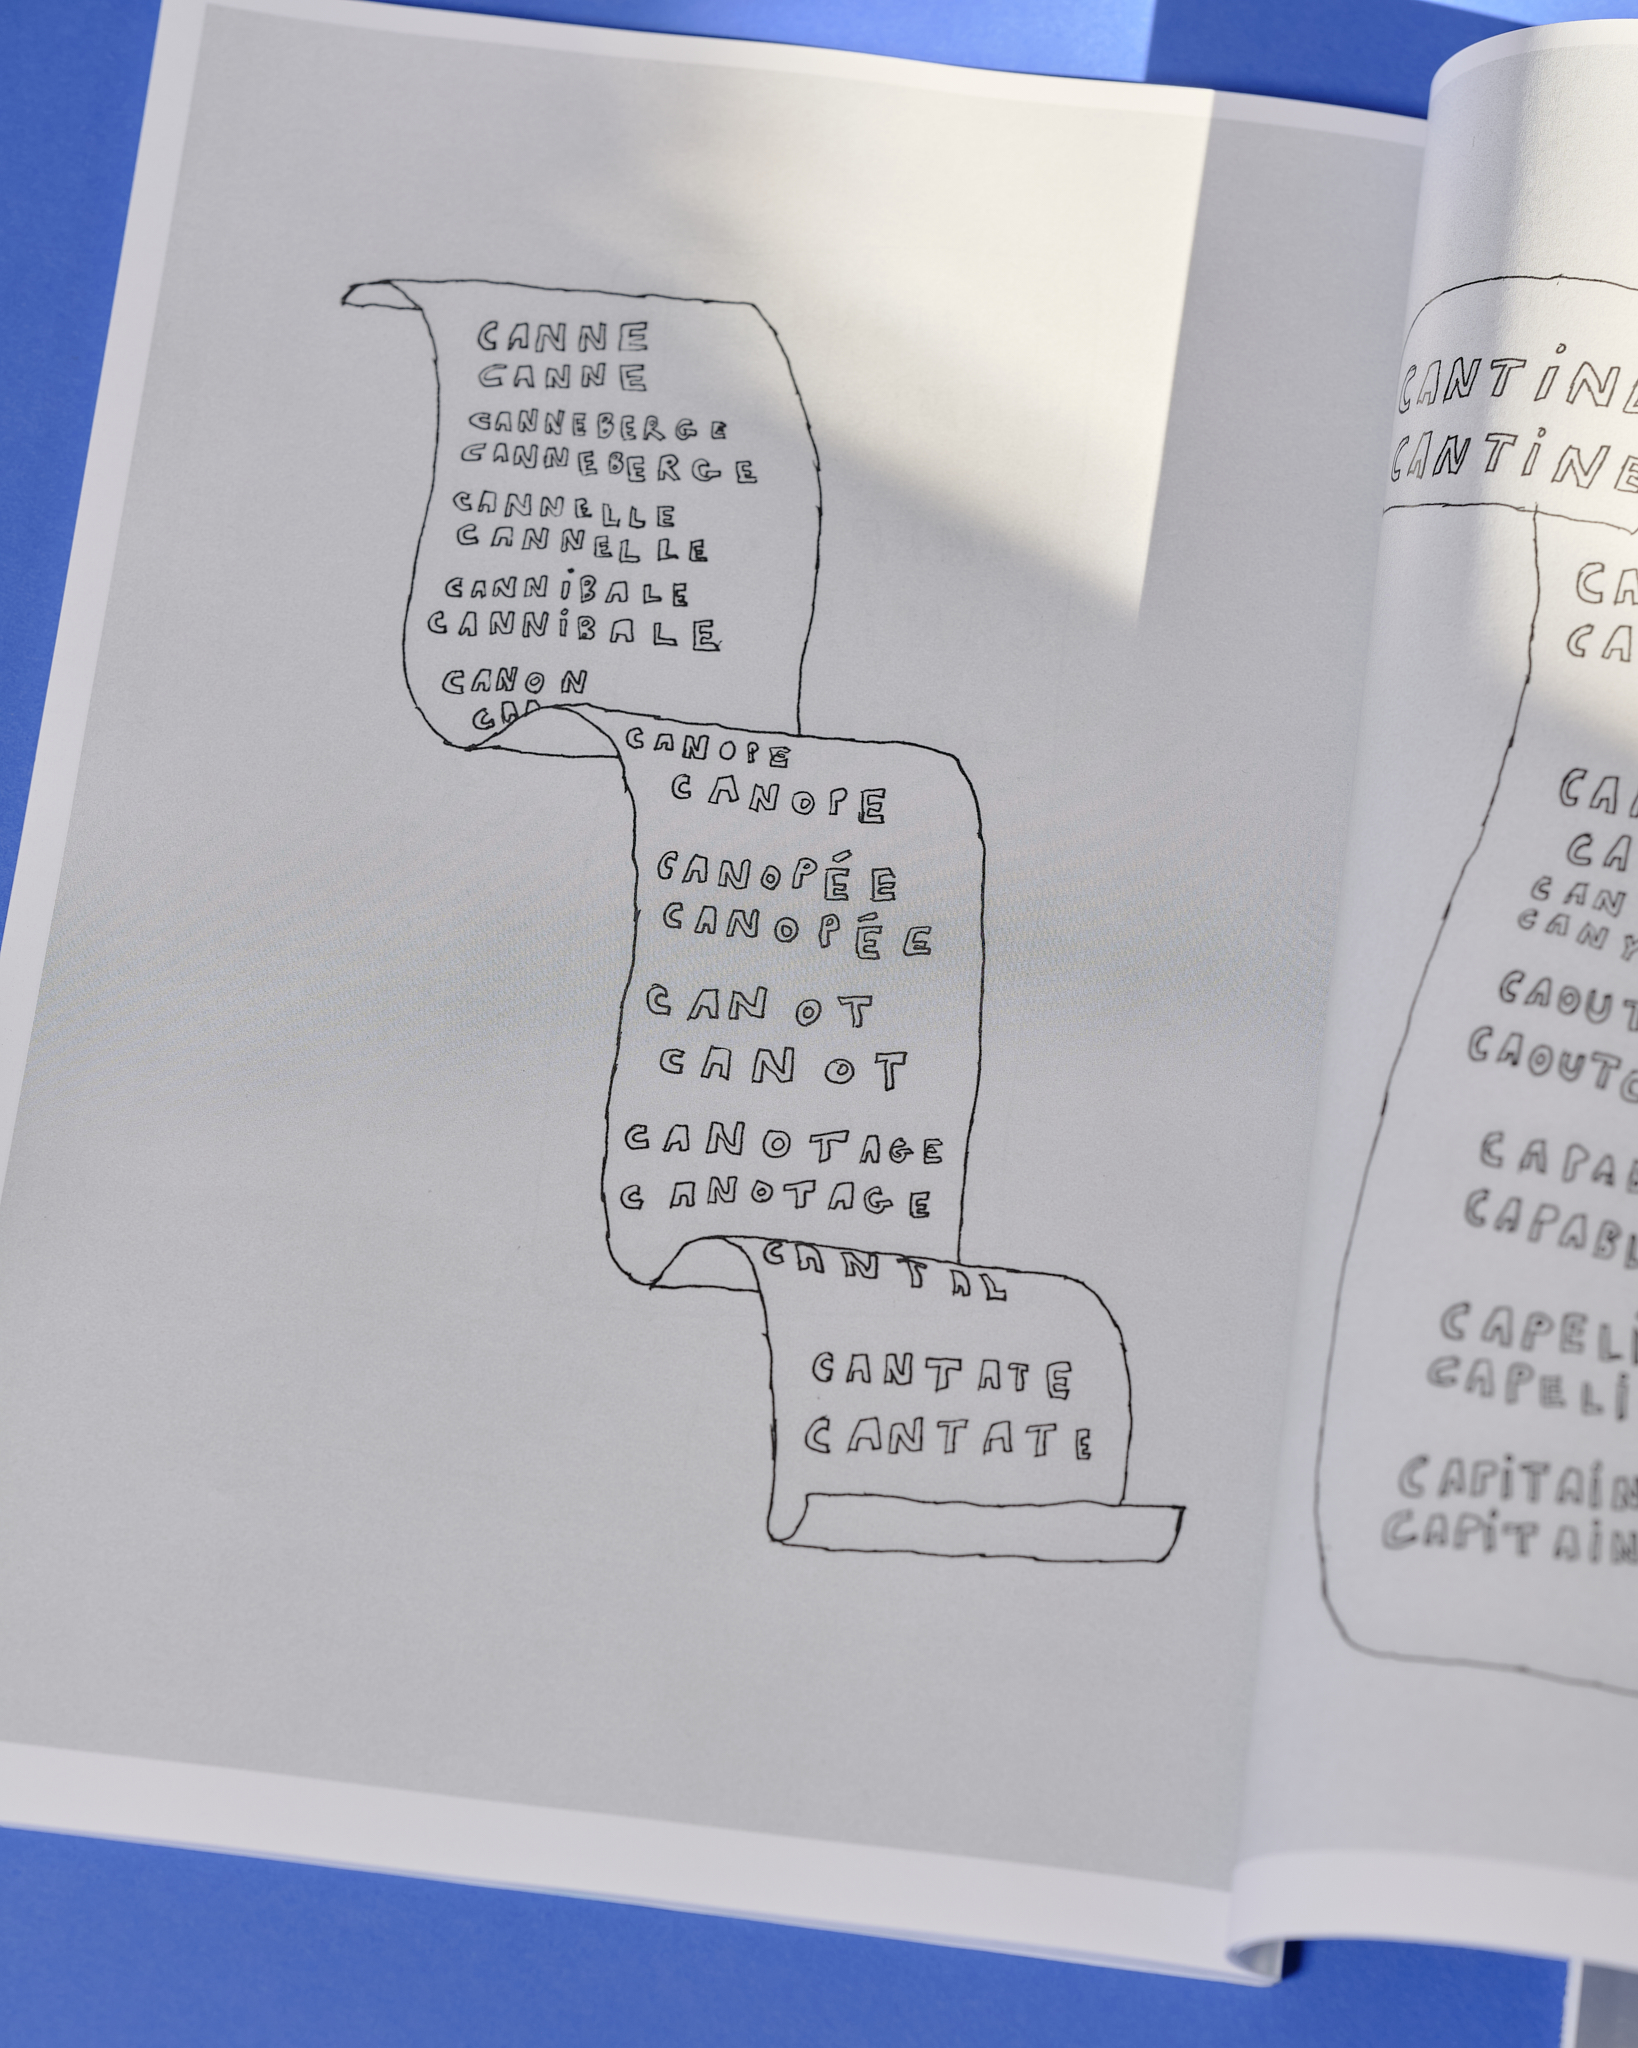 CANNE
CANNE
CANNEBERGE
CANNEBERGE
CANNELLE
CANNELLE
CANNiBALE
CANNiBALE
CANON
CANOPE
CANOPE
CANOPÉE
CANOPÉE
CANOT
CANOT
CANOTAGE
CANOTAGE
CANTAL
CANTATE
CANTATE
CANTiNE
CANTiNE
CA
CA
CA
CAN
CANY
CAOUT
CAOUTC
CAPAB
CAPABL
CAPELi
CAPELi
CAPiTAiN
CAPiTAiN